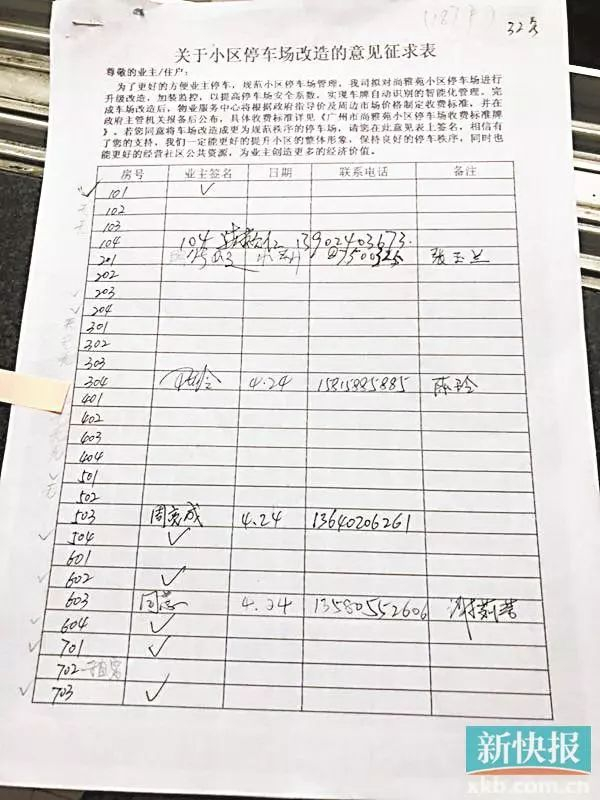 32点
关于小区停车场改造的意见征求表
尊敬的业主/住户：
为了更好的方便业主停车，规范小区停车场管理，我司拟对尚雅苑小区停车场进行
升级改造，加装监控，以提高停车场安全系数，实现车牌自动识别的智能化管理。完
成车场改造后，物业服务中心将根据政府指导价及周边市场价格制定收费标准，并在
政府主管机关报备后公布，具体收费标准详见《广州市尚雅苑小区停车场收费标准牌
》。若您同意将车场改造成更为规范秩序的停车场，请您在此意见表上签名，相信有
了您的支持，我们一定能更好的提升小区的整体形象，保持良好的停车秩序，同时也
能更好的经营社区公共资源，为业主创造更多的经济价值。
房号 业主签名 日期 联系电话 备注
101 ✓
102
103
104 104 13902403673
201 张玉兰
202
203
204
301
302
303
304 4.24 15815885885 陈玲
401
402
403
404
501
502
503 周亥成 4.24 13640206261
504 ✓
601
602 ✓
603 4.24 13580552606
604 ✓
701 ✓
702
703 ✓
新快报
xkb.com.cn